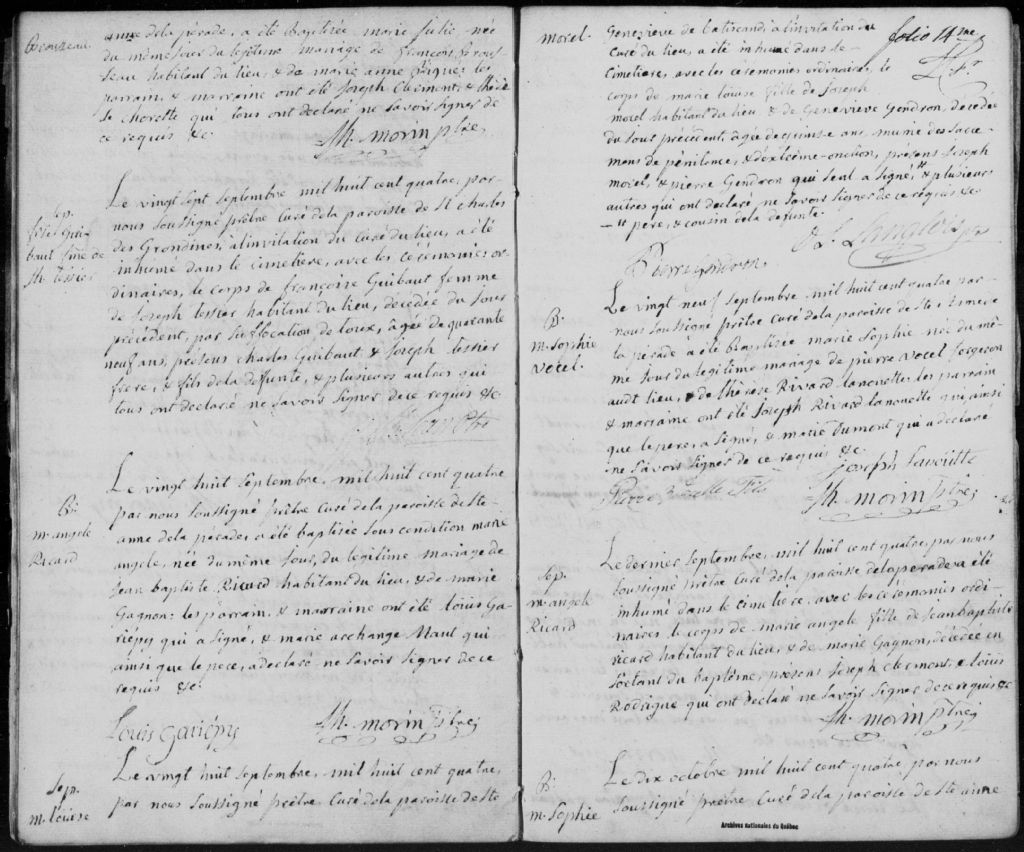 Brousseau.
anne de la pérade, a été baptisée marie Julie née
du même jour du légitime mariage de françois Brous-
seau habitant du lieu, & de marie anne
parrain & marraine ont été Joseph Clement, &
qui tous ont declaré ne savoir signer de
ce requis &c.
Ch. morin ptre
Sep.
femme de
Tessier
Le vingt sept septembre mil huit cent quatre, par-
nous soussigné prêtre Curé de la paroisse de St Charles
des Grondines, à l'invitation du Curé du lieu, a été
inhumé dans le cimetière, avec les cérémonies or-
dinaires, le corps de françoise Guibaut femme
de Joseph tessier habitant du lieu, decedée du jour
précédent, par suffocation de toux, âgée de quarante
neuf ans, présens charles Guibaut & Joseph tessier
frere, & fils de la deffunte, & plusieurs autres qui
tous ont declaré ne savoir signer de ce requis &c.
B.
m. angele
Ricard
Le vingt huit septembre, mil huit cent quatre
par nous soussigné prêtre Curé de la paroisse de Ste
anne de la pérade, a été baptisée sous condition marie
angele, née du même jour, du legitime mariage de
Jean baptiste Ricard habitant du lieu, & de marie
Gagnon: les parrain, & marraine ont été Louis Ga-
riépy qui a signé, & marie archange qui
ainsi que le pere, a declaré ne savoir signer de ce
requis &c.
Louis Gariépy
Ch. morin ptre
Sep.
m. louise
Le vingt huit septembre, mil huit cent quatre,
par nous soussigné prêtre Curé de la paroisse de Ste
folio 14me
morel.
Genevieve de Batiscand, a l'invitation du
Curé du lieu, a été inhumé dans le
cimetiere, avec les cérémonies ordinaires, le
corps de marie louise fille de Joseph
morel habitant du lieu & de Genevieve Gendron, decedée
du jour précédent, âgée de quinse ans, munie des sacre-
mens de penitence, & d'extrême-onction, présens Joseph
morel, & pierre Gendron qui seul a signé, & plusieurs
autres qui ont declaré ne savoir signer de ce requis &c
pere, & cousin de la defunte.
Pierre Gendron
B.
m. Sophie
vocel.
Le vingt neuf septembre mil huit cent quatre par-
nous soussigné prêtre Curé de la paroisse de Ste anne de
la pérade a été baptisée marie Sophie née du mê-
me jour du legitime mariage de pierre vocel forgeron
audt lieu, & de thérèse Rivard lanouette, les parrain
& marraine ont été Joseph Rivard lanouette qui, ainsi
que le pere, a signé, & marie Dumont qui a declaré
ne savoir signer de ce requis &c.
Joseph Lanouitte
Pierre fils
Ch. morin ptre
Sep.
m. angele
Ricard
Le dernier septembre, mil huit cent quatre, par nous
soussigné prêtre curé de la paroisse de la perade a été
inhumé dans le cimetiere avec les cérémonies ordi-
naires le corps de marie angele fille de Jean baptiste
ricard habitant du lieu, & de marie Gagnon, decedée en
sortant du baptême, présens Joseph Clement, & louis
Rodrigue qui ont declaré ne savoir signer de ce requis &c
Ch. morin ptre
B.
m. Sophie
Le dix octobre mil huit cent quatre, par nous
soussigné prêtre Curé de la paroisse de Ste anne
Archives nationales du Québec